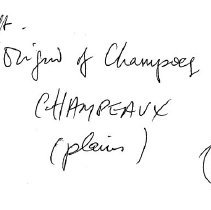 Origin of Champoeg
CHAMPEAUX
(plains)